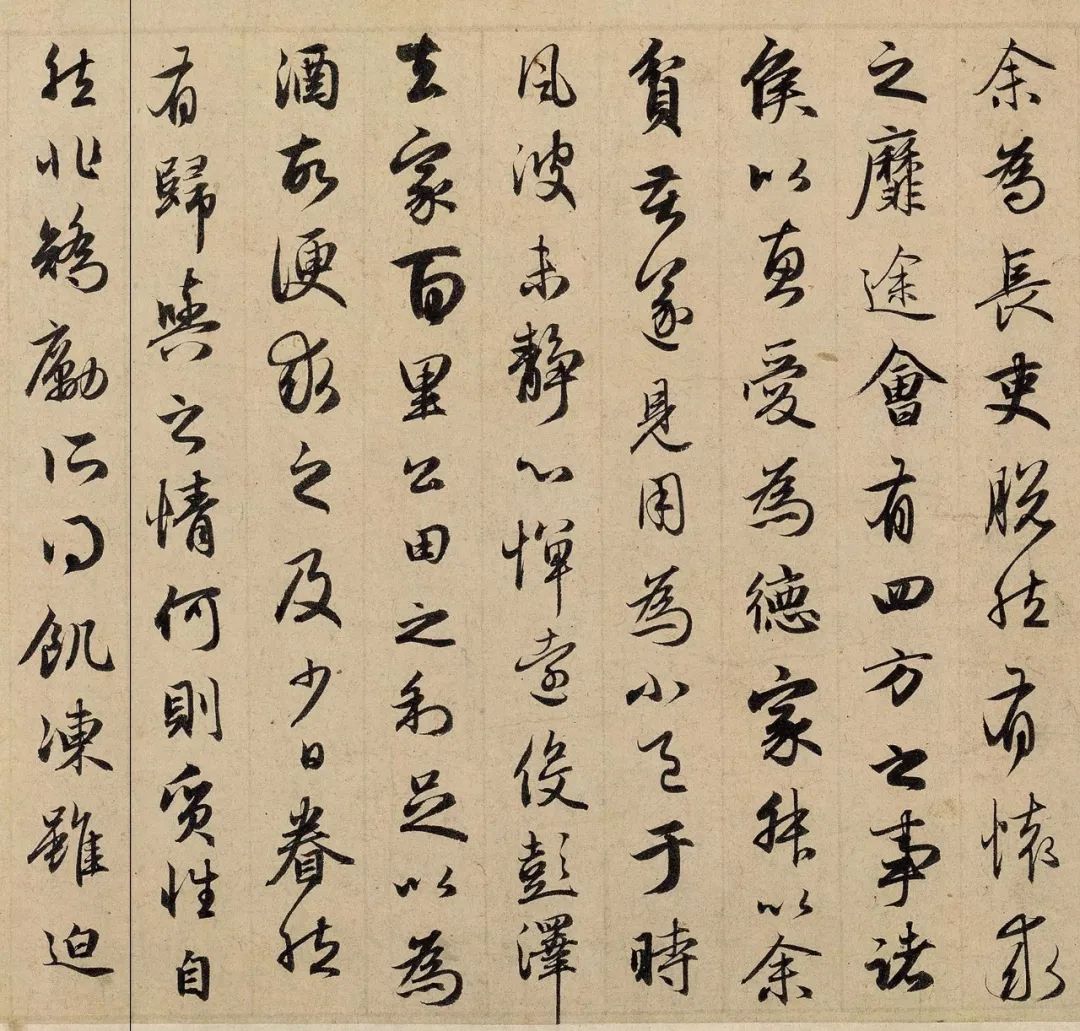 余為長吏脫然有懷求
之靡途會有四方之事諸
侯以惠愛為德家叔以余
貧苦遂見用為小邑于時
風波未靜心憚遠役彭澤
去家百里公田之利足以為
酒故便求之及少日眷然
有歸與之情何則質性自
然非矯勵所得飢凍雖迫